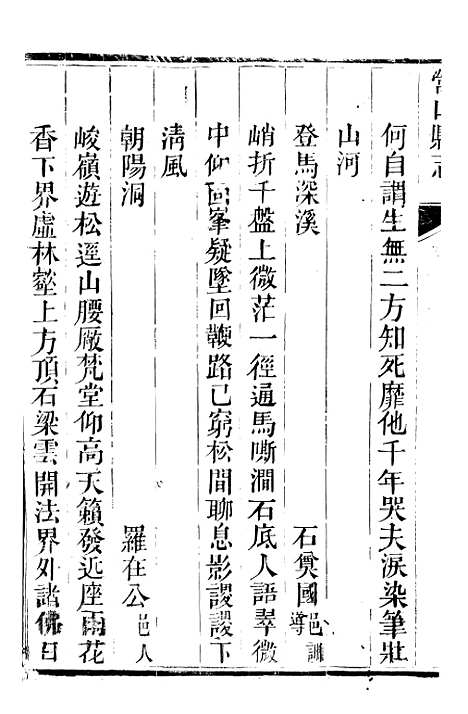 營山縣志
何自謂生無二方知死靡他千年哭夫淚染筆壯
山河
登馬深溪
石奠國邑訓導
峭折千盤上微茫一徑通馬嘶澗石底人語翠微
中仰面峯疑墜回鞭路已窮松間聊息影謖謖下
清風
朝陽洞
羅在公邑人
峻嶺遊松逕山腰厰梵堂仰高天籟發近座雨花
香下界虛林壑上方頂石梁雲開法界外諸佛自